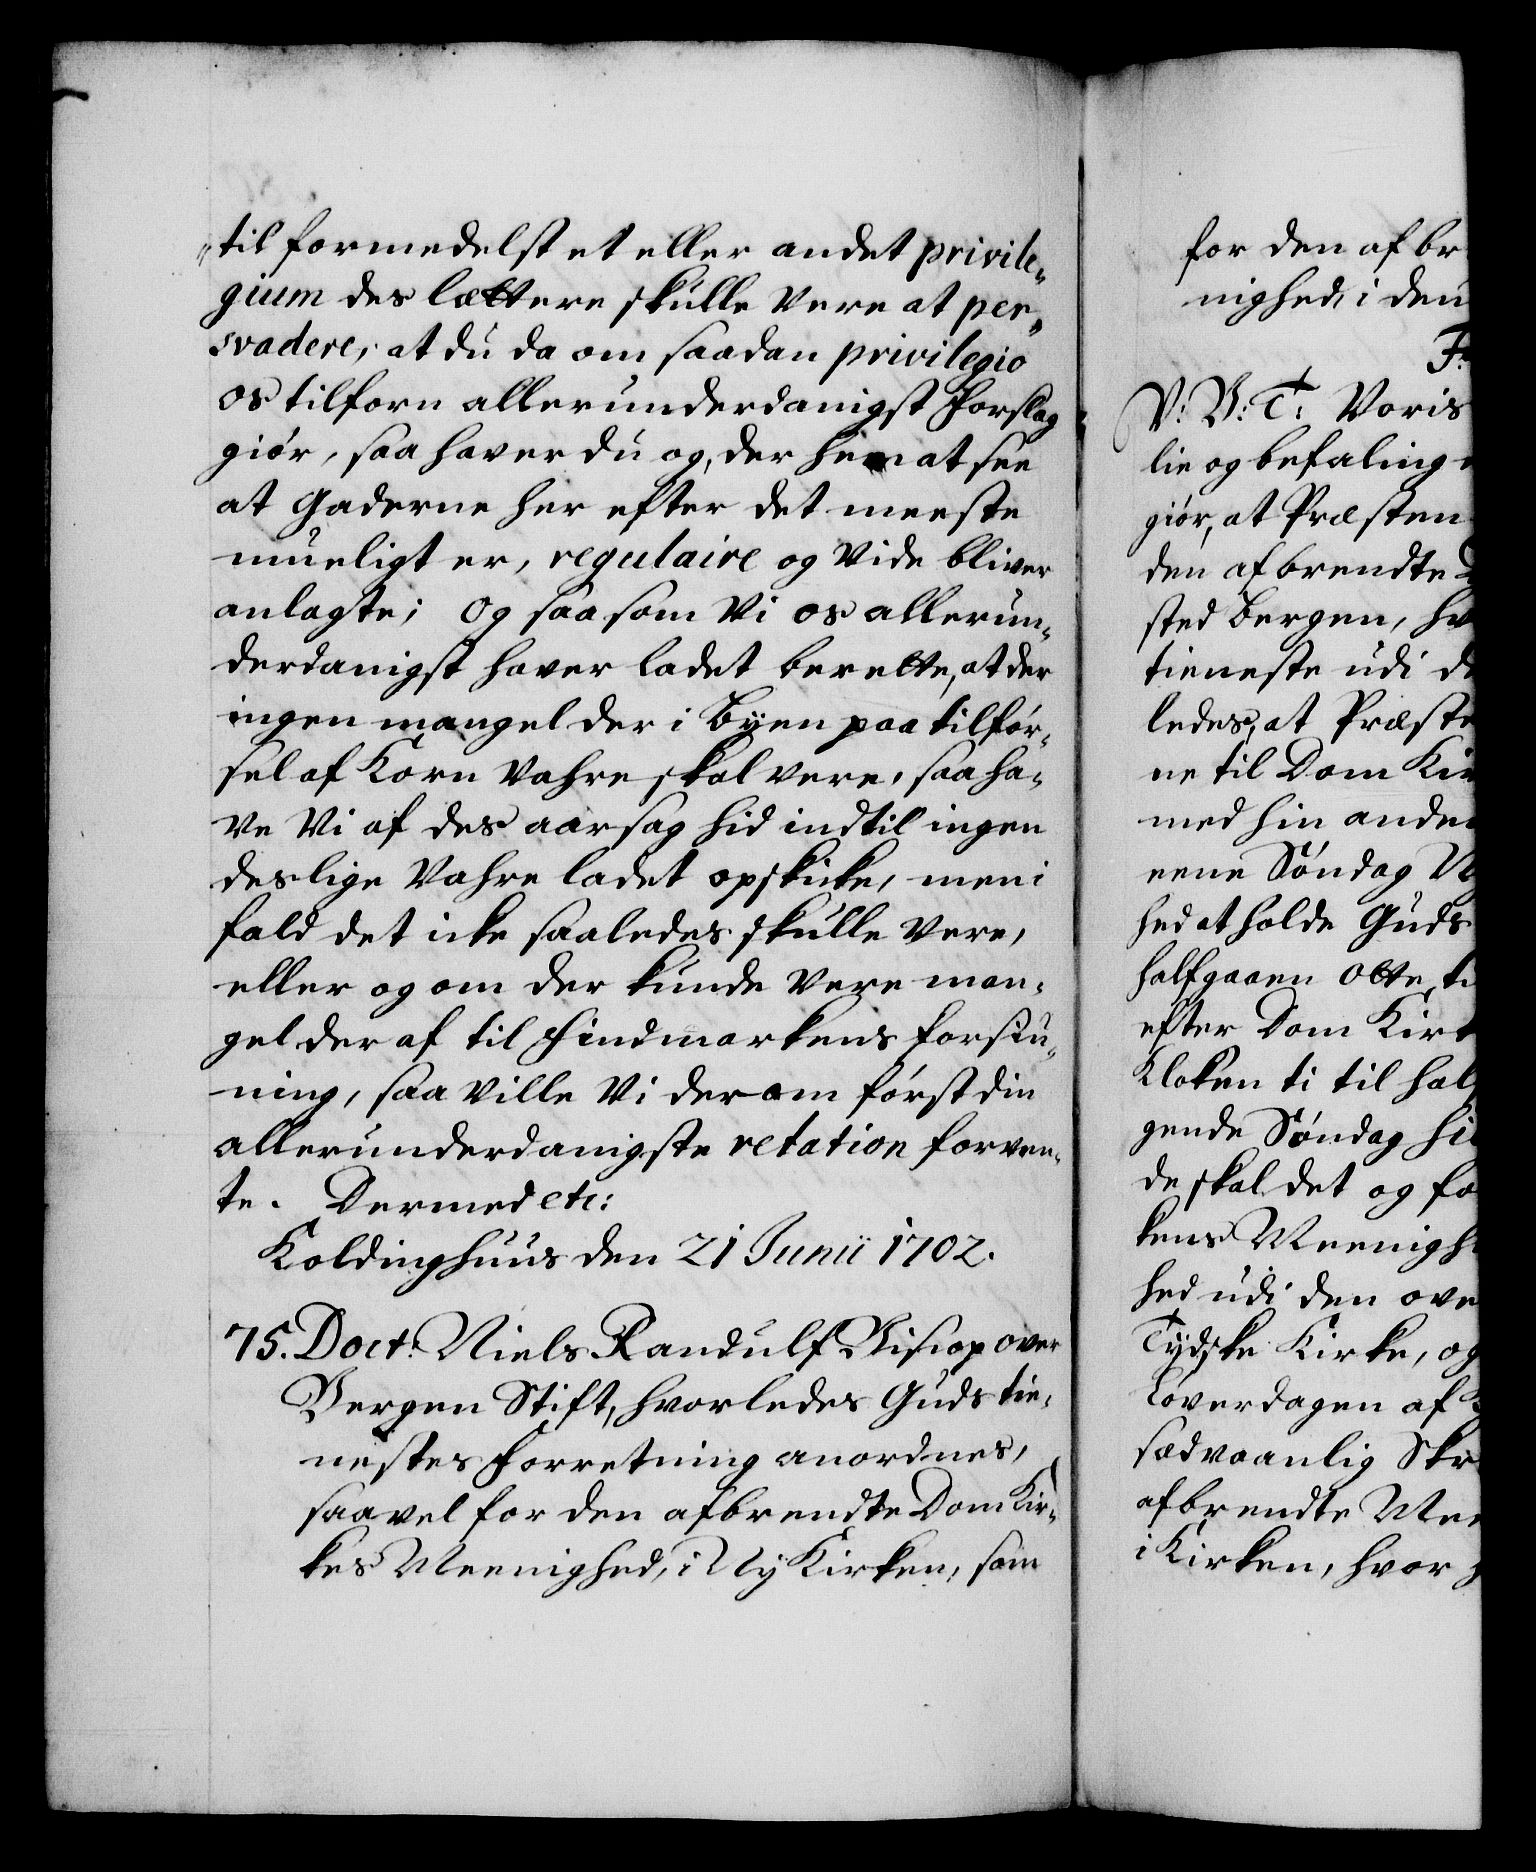 „til formedelst et eller andet privile„
gium des lættere skulle Vere at per„
svadere, at du da om saadan privilegio
os tilforn allerunderdanigst Forslag
giør, saa haver du og, der hen at see
at Gaderne her efter det meeste
mueligt er, regulaire og Vide bliver
anlagte; Og saasom Vi os allerun„
derdanigst haver ladet berette, at der
ingen mangel der i Byen paa tilfør„
sel af Korn Vahre skal vere, saa ha„
ve Vi af des aarsag hid indtil ingen
deslige Vahre ladet opskicke, men i
fald det icke saaledes skulle Vere,
eller og om der kunde Vere man„
gel der af til Findmarkens forsiu„
ning, saa Ville Vi derom først din
allerunderdanigste relation forven„
te. Dermed etc:
Koldinghuus den 21 Junii 1702.
75. Doct: Niels Randulf Biscop over
Bergen Stift, hvorledes Guds tie„
nestes Forretning anordnes,
saavel for den afbrendte Dom Kir„
kes Meenighed, i Ny Kirken, som
for den afbr
nighed, i den
V: B: T: Voris
lie og befaling
giør, at Præsten
den afbrendte
sted Bergen, hv
tieneste udi d
ledes, at Præste
ne til Dom Kir
med hin anden
eene Søndag
hed at holde Guds
halfgaaen Otte, ti
efter Dom Kirk
Kloken ti til hal
gende Søndag hi
de skal det og fo
kens Meenigh
hed udi den ove
Tydske Kirke, og
Løverdagen af
sædvaanlig Skr
afbrendte Mee
i Kirken, hvor